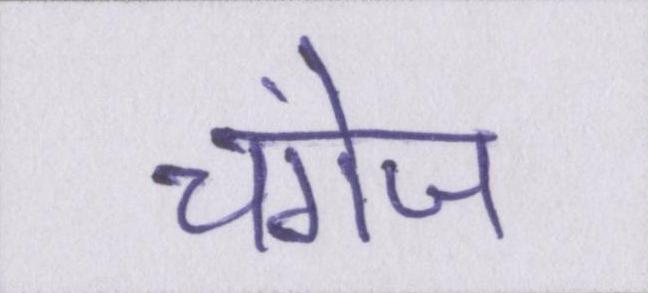 चंगेज